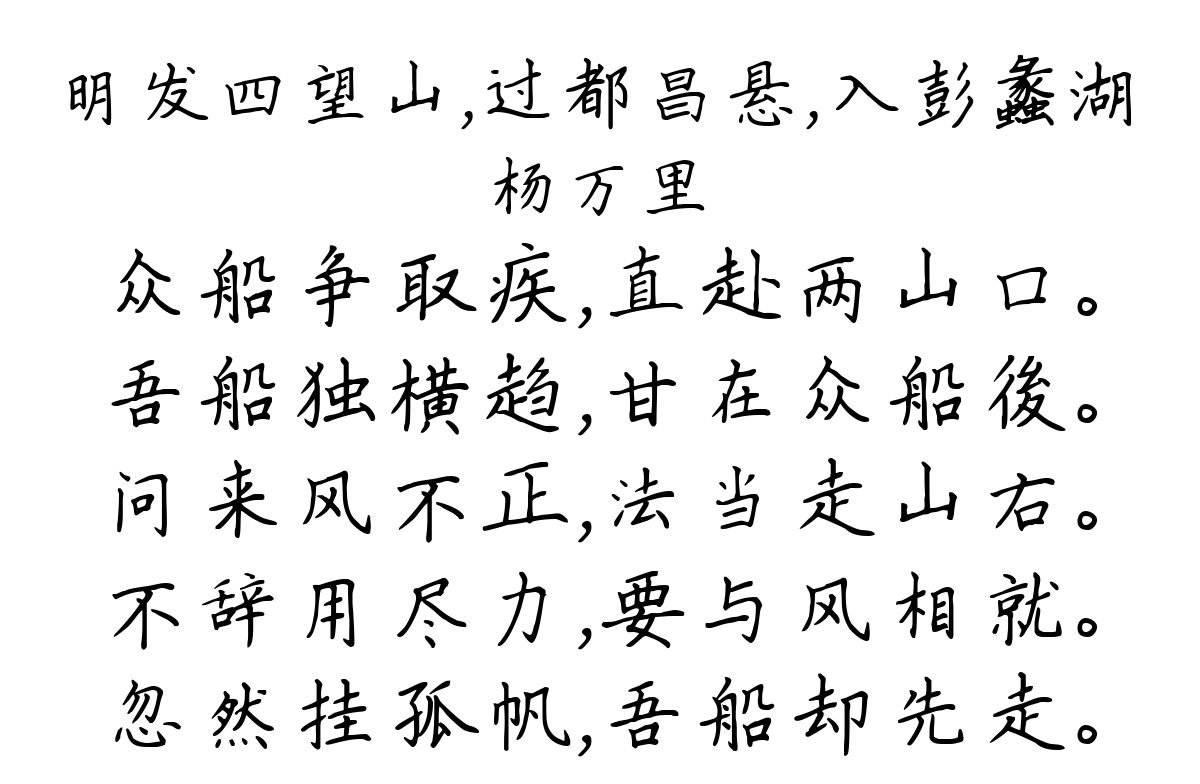 明发四望山,过都昌悬,入彭蠡湖
杨万里
众船争取疾,直赴两山口。
吾船独横趋,甘在众船後。
问来风不正,法当走山右。
不辞用尽力,要与风相就。
忽然挂孤帆,吾船却先走。